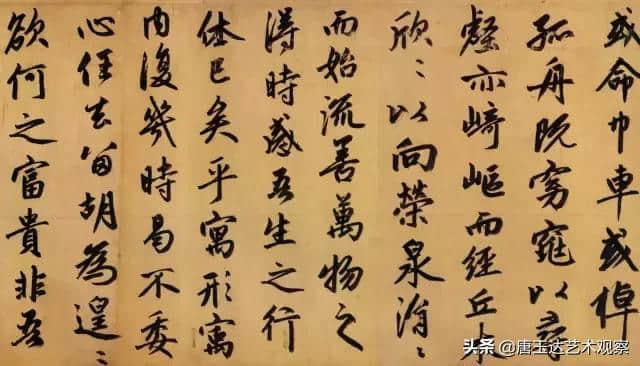 或命巾車或棹
孤舟既窈窕以尋
壑亦崎嶇而經丘木
欣〻以向榮泉涓〻
而始流善萬物之
得時感吾生之行
休已矣乎寓形寓
内復幾時曷不委
心任去留胡為遑〻
欲何之富貴非吾
头条 @唐玉达艺术观察